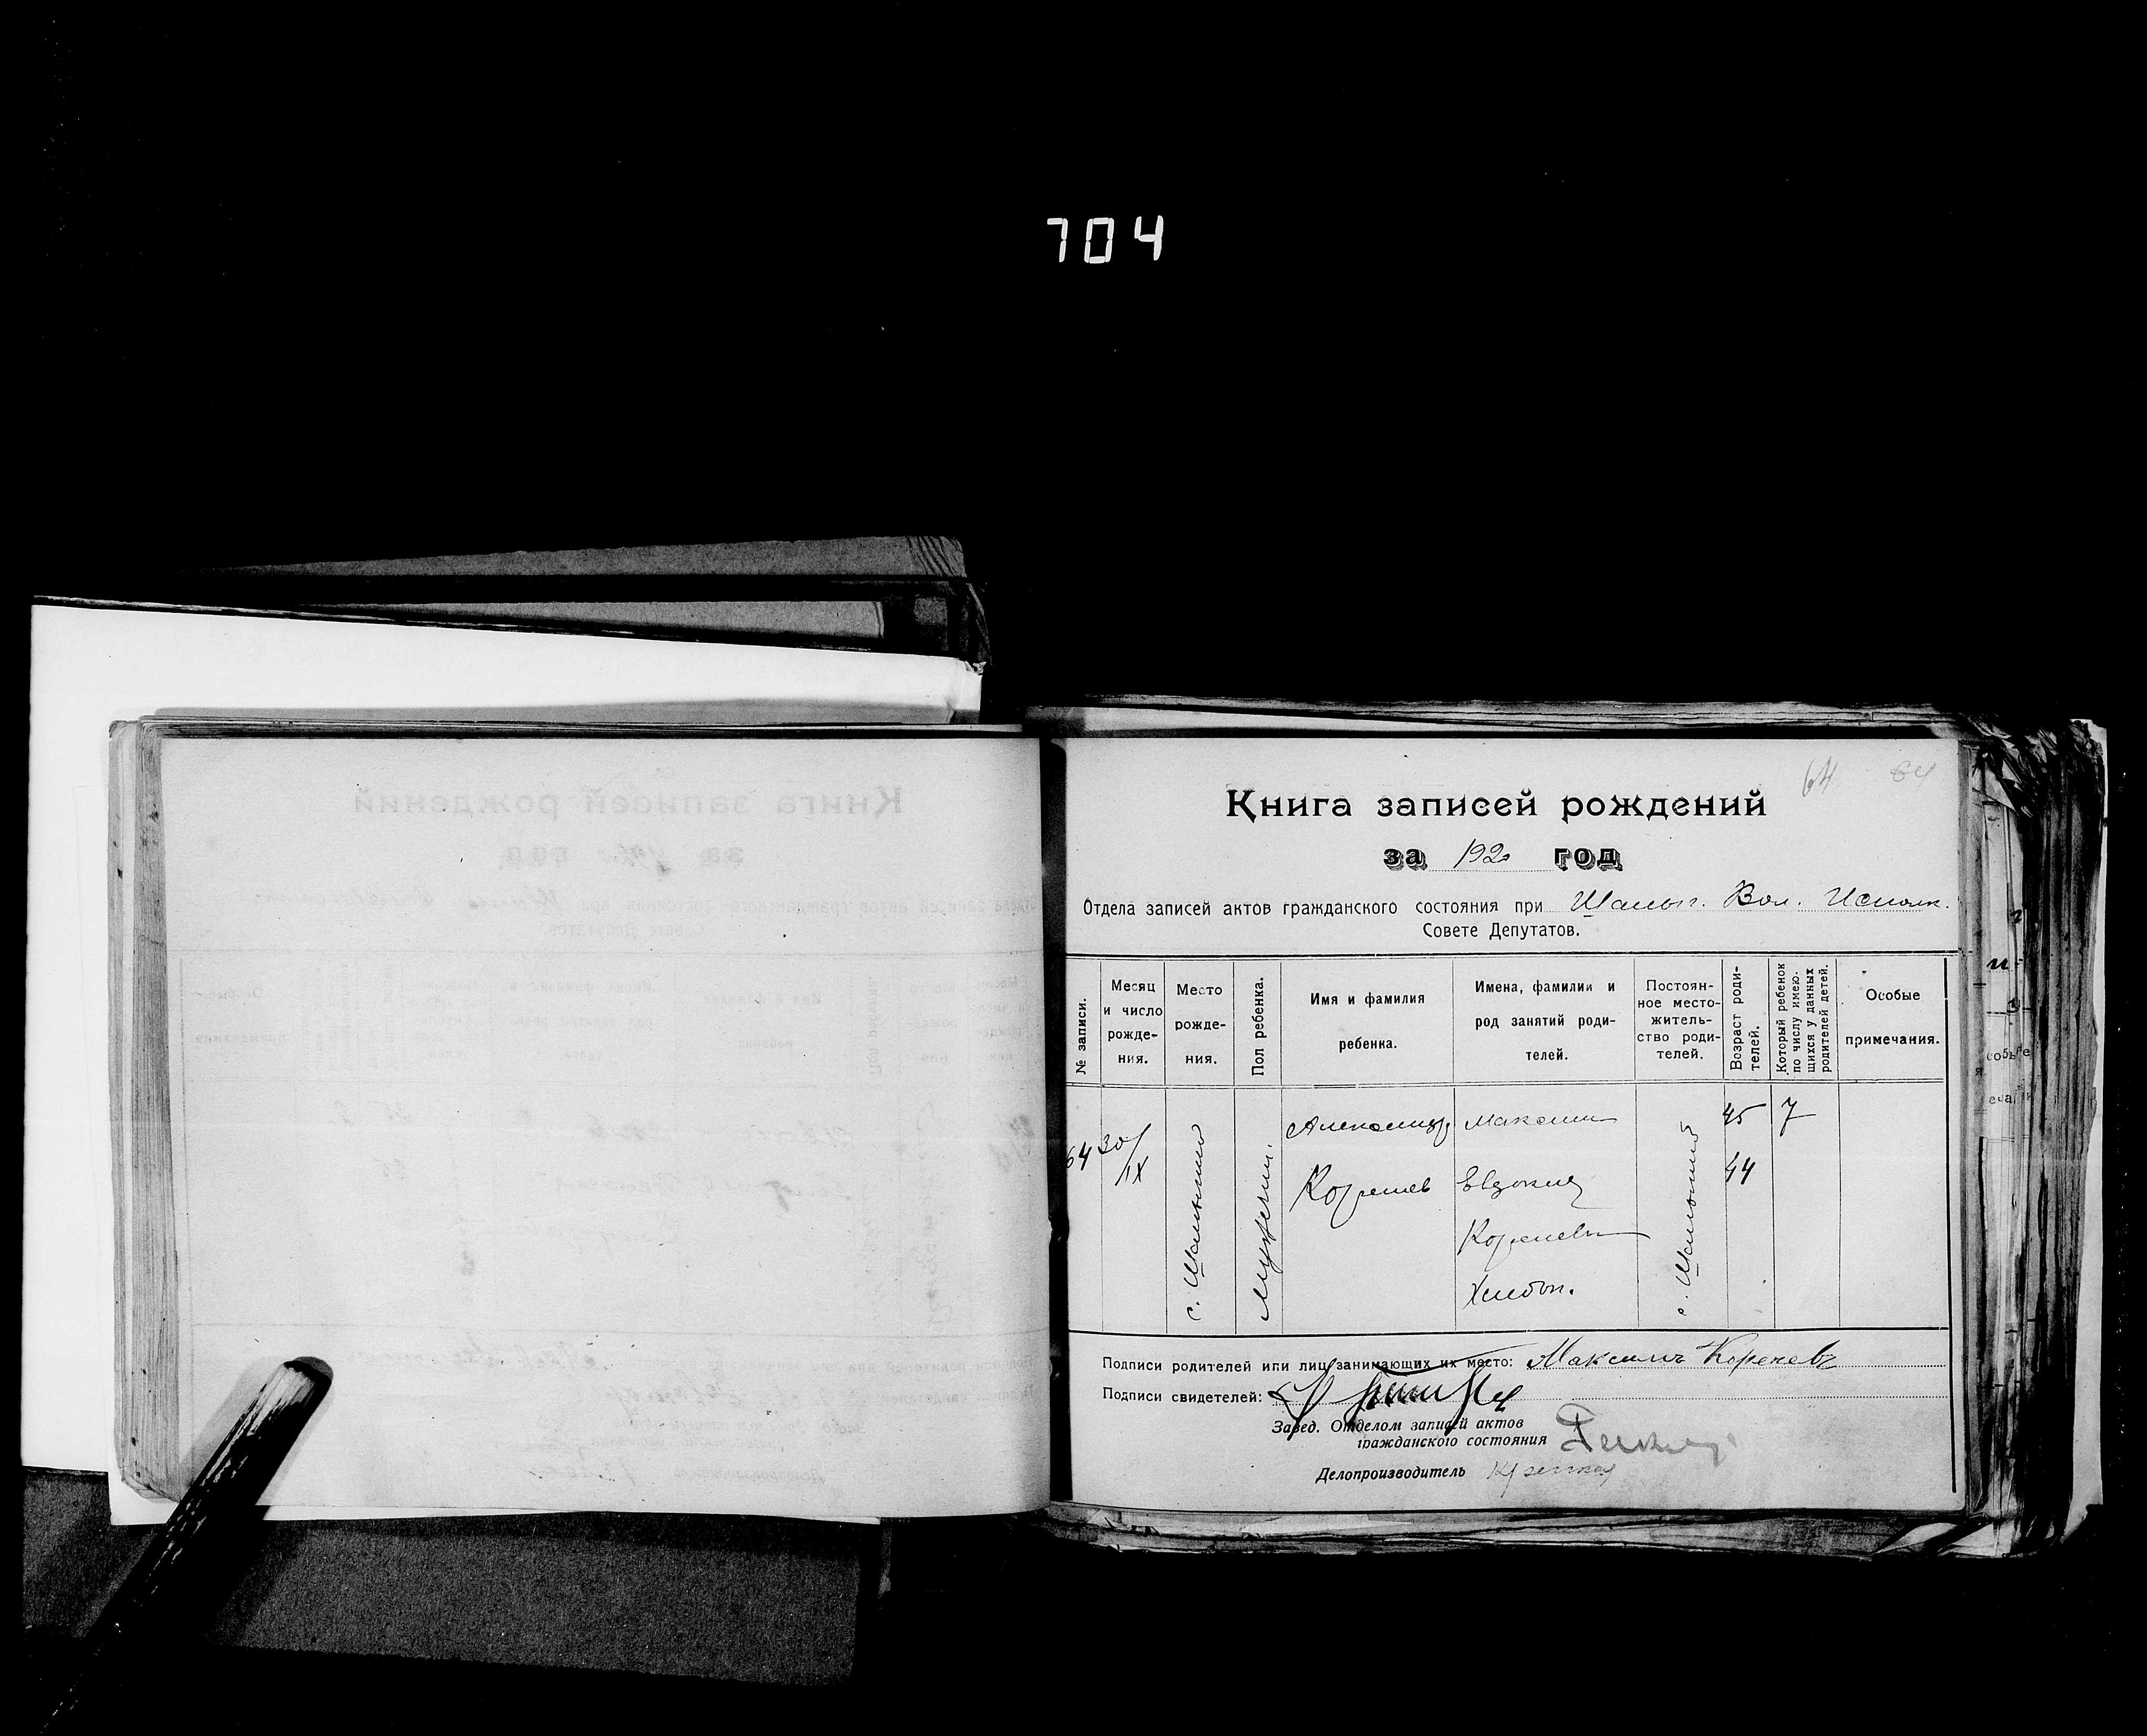 704
64 64
Книга записей рождений
за 1920 год
Отдела записей актов гражданского состояния при Шалыг. Вол. Исполк.
Совете Депутатов.
№ записи.
Месяц и число рожде-ния.
Место рожде-ния.
Пол ребенка.
Имя и фамилия ребенка.
Имена, фамилии и род занятий роди-телей.
Постоян-ное место-житель-ство роди-телей.
Возраст роди-телей.
Который ребенок по числу имею-щихся у данных родителей детей.
Особые примечания.
64
30/IX
с.
Мужской.
Александр
Коренев
Максим
Евдокия
Кореневы
Хлебоп.
с.
45
44
7
Подписи родителей или лиц занимающих их место: Максимъ Кореневъ
Подписи свидетелей:
Завед. Отделом записей актов
гражданского состояния
Делопроизводитель